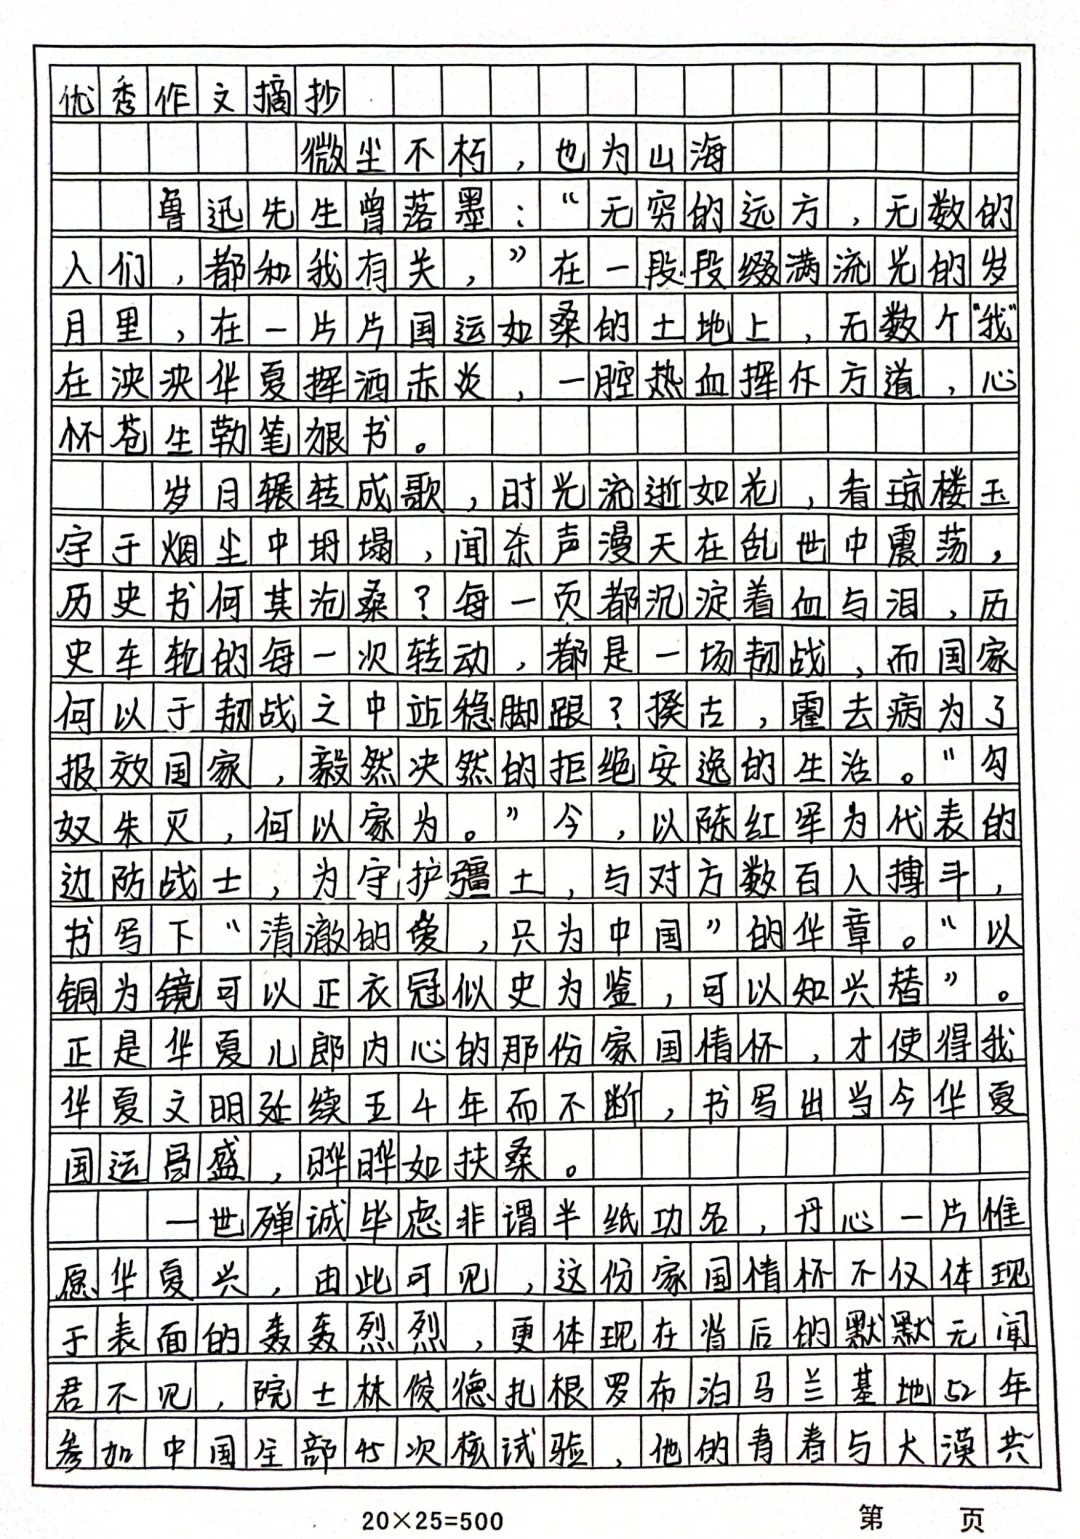 优秀作文摘抄
微尘不朽，也为山海
鲁迅先生曾落墨：“无穷的远方，无数的
人们，都和我有关，”在一段段缀满流光的岁
月里，在一片片国运如桑的土地上，无数个“我”
在泱泱华夏挥洒赤炎，一腔热血挥作方遒，心
怀苍生勒笔狠书。
岁月辗转成歌，时光流逝如花，看琼楼玉
宇于烟尘中坍塌，闻杀声漫天在乱世中震荡，
历史书何其沧桑？每一页都沉淀着血与泪，历
史车轮的每一次转动，都是一场韧战，而国家
何以于韧战之中站稳脚跟？揆古，霍去病为了
报效国家，毅然决然的拒绝安逸的生活。“匈
奴未灭，何以家为。”今，以陈红军为代表的
边防战士，为守护疆土，与对方数百人搏斗，
书写下“清澈的爱，只为中国”的华章。“以
铜为镜可以正衣冠似史为鉴，可以知兴替”。
正是华夏儿郎内心的那份家国情怀，才使得我
华夏文明延续五千年而不断，书写出当今华夏
国运昌盛，晔晔如扶桑。
一世殚诚毕虑非谓半纸功名，丹心一片惟
愿华夏兴，由此可见，这份家国情怀不仅体现
于表面的轰轰烈烈，更体现在背后的默默无闻
君不见，院士林俊德扎根罗布泊马兰基地52年
参加中国全部45次核试验，他的青春与大漠共
20×25=500
第 页